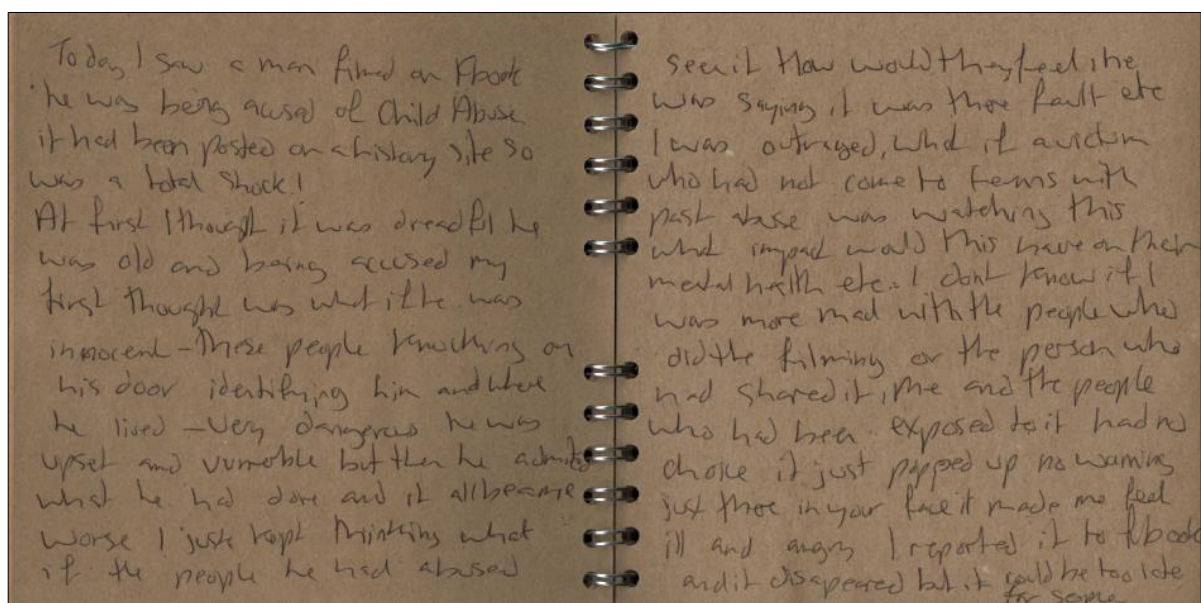 Today I saw a man filmed on Fbook
he was being acused of Child Abuse
it had been posted on a history site so
was a total shock!
At first I thought it was dreadful he
was old and being accused my
first thought was what if he was
innocent - These people knocking on
his door identifying him and where
he lived - very dangerous he was
upset and vunrable but then he admited
what he had done and it all became
worse I just kept thinking what
if the people he had abused
seen it How would they feel, he
was saying it was there fault etc
I was outraged, what if a victum
who had not come to terms with
past abuse was watching this
what impact would this have on their
mental health etc.. I dont know if I
was more mad with the people who
did the filming or the person who
had shared it, me and the people
who had been exposed to it had no
choice it just popped up no warning
just there in your face it made me feel
ill and angry I reported it to fbook
and it disapeared but it could be too late
for some